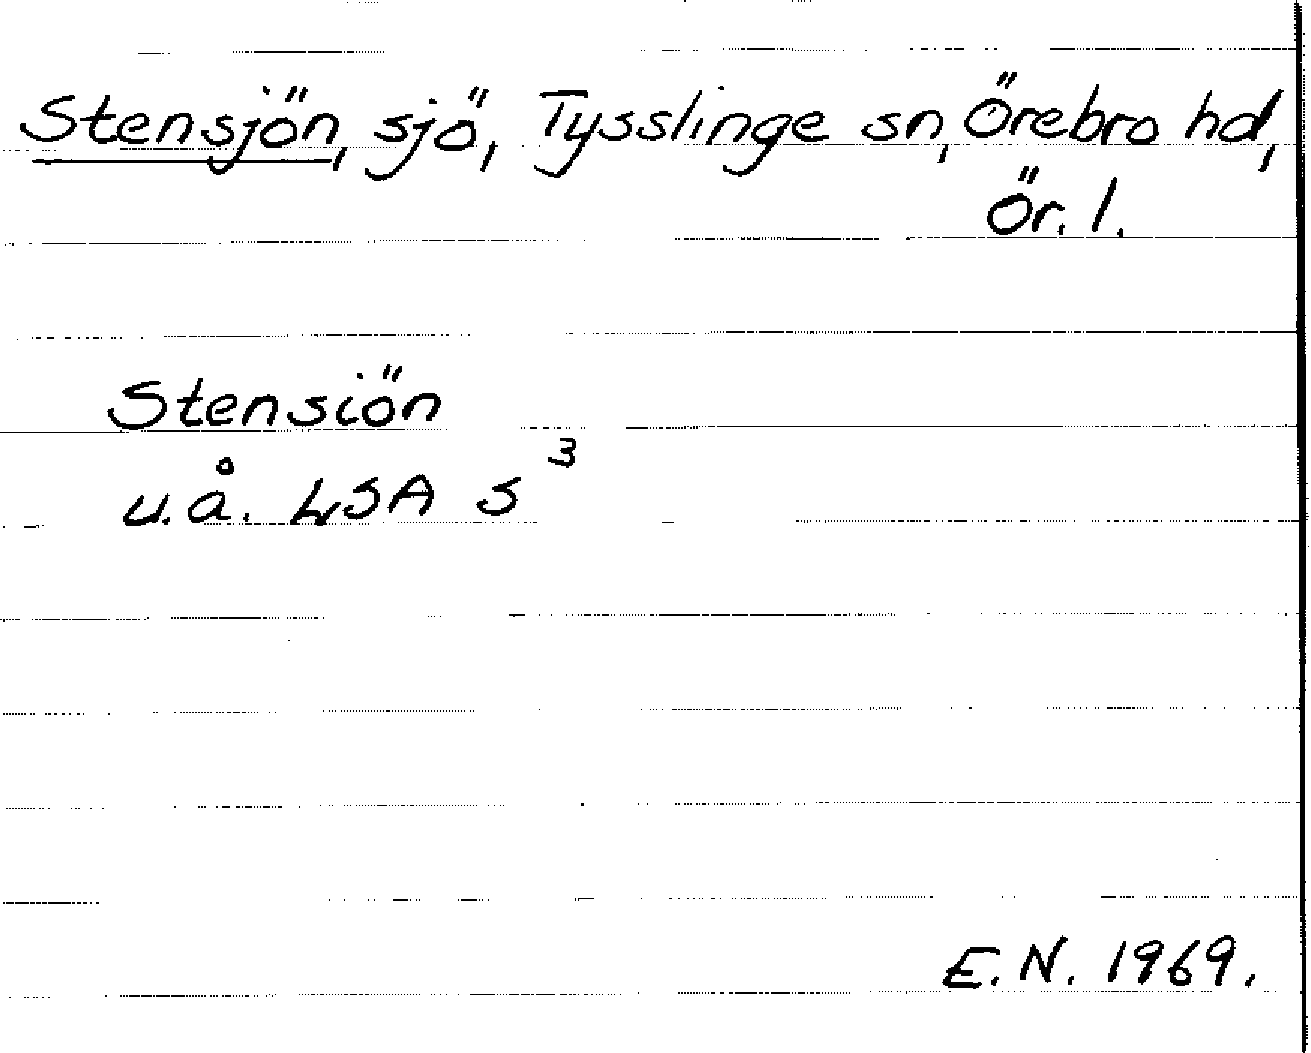 Stensjön, sjö, Tysslinge sn, Örebro hd,
Ör. l.
Stensiön
u.å. LSA S³
E.N. 1969.